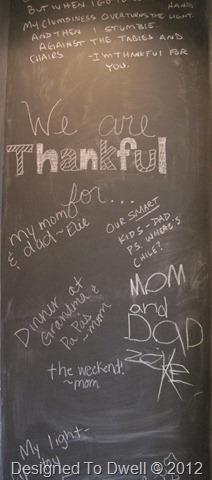 BUT WHEN I GO TO
HANDS
MY CLUMSINESS OVERTURNS THE LIGHT.
AND THEN I STUMBLE.
AGAINST THE TABLES AND
CHAIRS -I'M THANKFUL FOR
YOU.
We are
Thankful
for...
my mom
& dad ~ Evie
OUR SMART
KIDS - DAD
P.S. WHERE'S
CHILE?
Dinner at
Grandma &
Pa Pas
~mom
MOM
and
DAD
ZEKE
the weekend!
~mom
My light-
Designed To Dwell © 2012